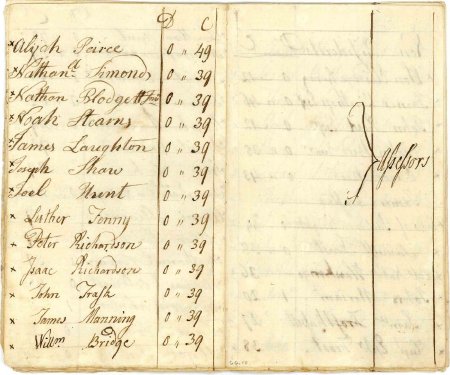 D C
×Alijah Peirce 0 " 49
×Nathanl Simonds 0 " 39
×Nathan Blodgett Junr 0 " 39
×Noah Stearns 0 " 39
James Laughton 0 " 39
Joseph Shaw 0 " 39
Joel Hunt 0 " 39
× Luther Fenny 0 " 39
× Peter Richardson 0 " 39
× Isaac Richardson 0 " 39
× John Trask 0 " 39
× James Manning 0 " 39
× Willm Bridge 0 " 39
Assessors